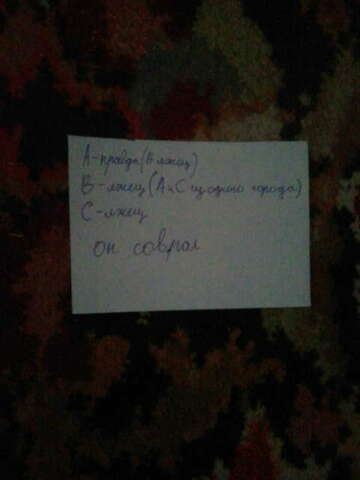 А - правда (В лжец)
В - лжец (А и С из одного города)
С - лжец
он соврал